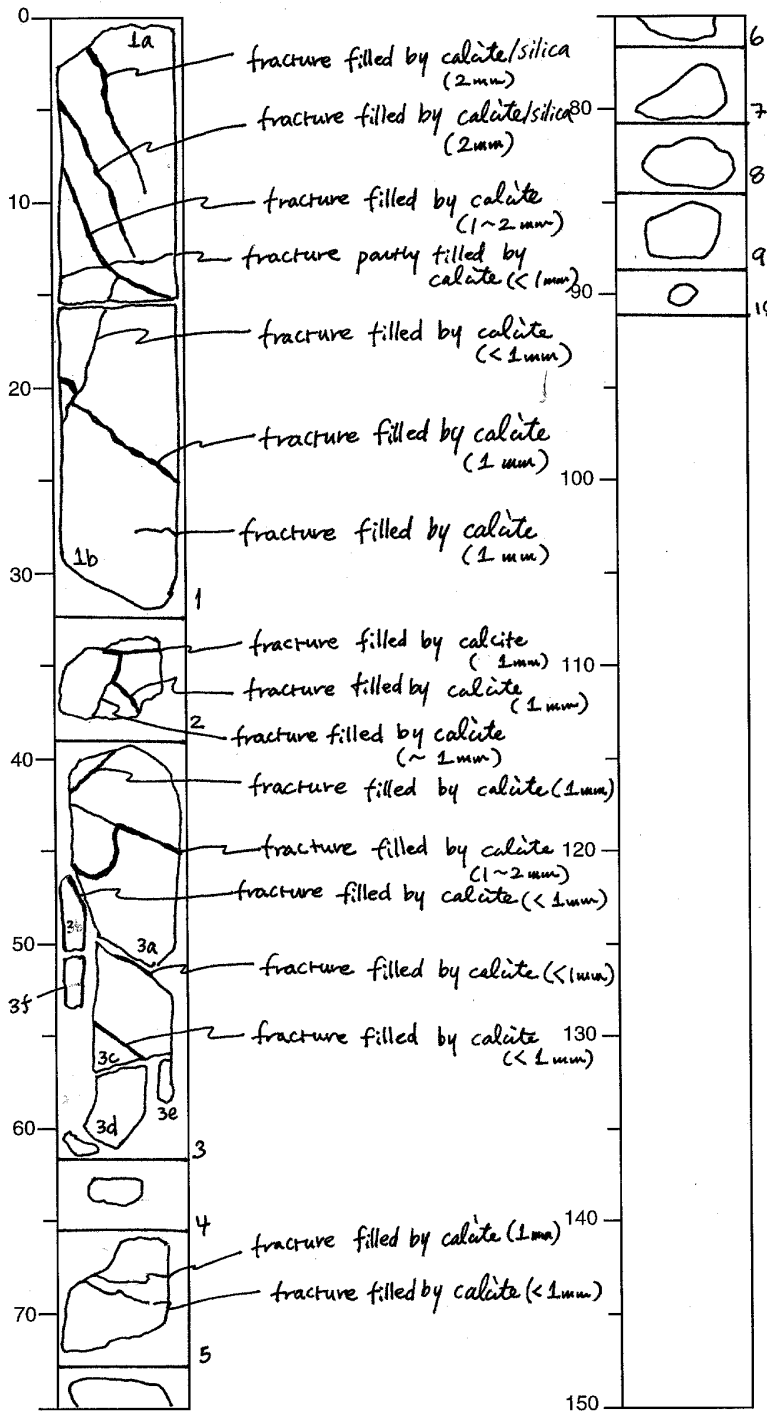 0
1a
fracture filled by calcite/silica
(2mm)
fracture filled by calcite/silica
(2mm)
10
fracture filled by calcite
(1~2mm)
fracture partly filled by
calcite (<1mm)
fracture filled by calcite
(<1mm)
20
fracture filled by calcite
(1mm)
fracture filled by calcite
(1mm)
1b
30
1
fracture filled by calcite
( 1mm)
fracture filled by calcite
(1mm)
2
fracture filled by calcite
(~ 1mm)
40
fracture filled by calcite (1mm)
fracture filled by calcite
(1~2mm)
fracture filled by calcite (<1mm)
3a
50
fracture filled by calcite (<1mm)
3f
fracture filled by calcite
(<1mm)
3c
3e
3d
60
3
4
fracture filled by calcite (1mm)
fracture filled by calcite (<1mm)
70
5
6
80
7
8
9
90
100
110
120
130
140
150